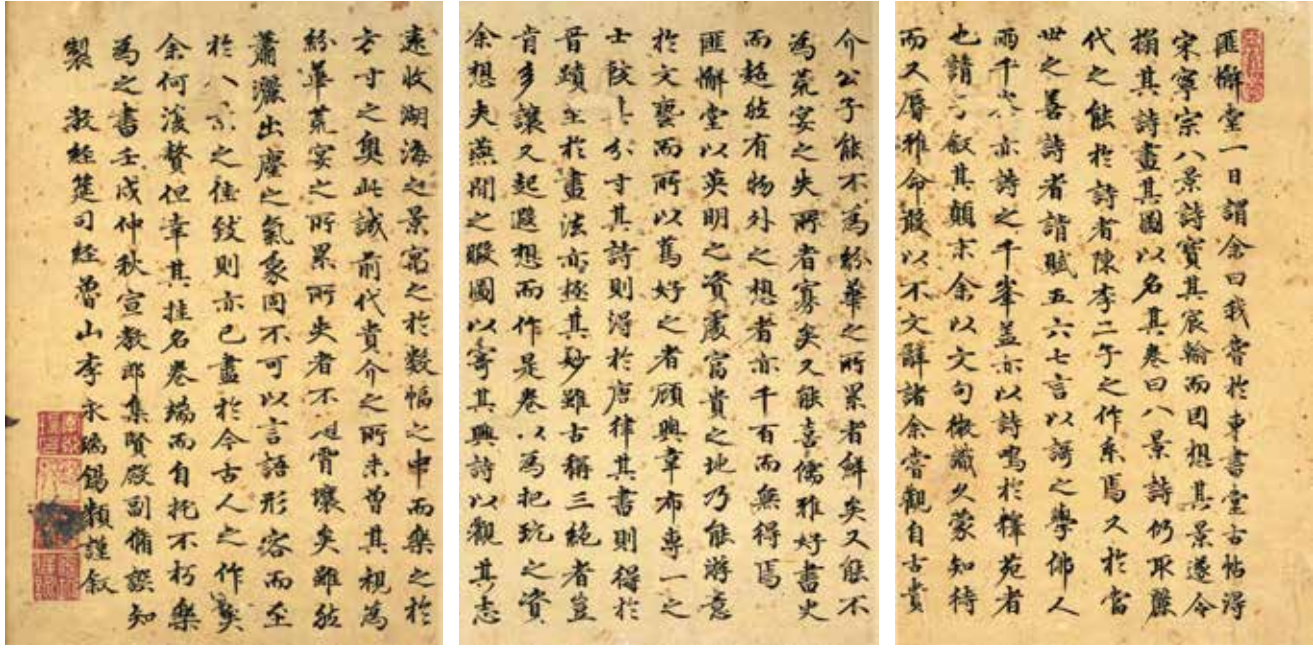 匪懈堂一日謂余曰我嘗於東書堂古帖得
宋寧宗八景詩寶其宸翰而因想其景遂令
搨其詩畫其圖以名其卷曰八景詩仍取麗
代之能於詩者陳李二子之作系焉又於當
世之善詩者請賦五六七言以謌之學佛人
雨千峯亦詩之千峯盖亦以詩鳴於禪苑者
也請叙其顛末余以文句微識久蒙知待
而又辱雅命敢以不文辭諸余嘗觀自古貴
介公子能不為紛華之所累者鮮矣又能不
為荒宴之失所者寡矣又能喜儒雅好書史
而超然有物外之想者亦千百而無得焉
匪懈堂以英明之資處富貴之地乃能游意
於文藝而所以篤好之者顧與韋布專一之
士較其分寸其詩則淂於唐律其書則得於
晉蹟至於畫法亦極其妙雖古稱三絶者豈
肯多讓又起遐想而作是卷以為把玩之資
余想夫燕閒之暇圖以寄其興詩以觀其志
遠收湖海之景寓之於數幅之中而樂之於
方寸之奥此誠前代貴介之所未曾其視為
紛華荒宴之所累所失者不啻霄壤矣雖然
蕭灑出塵之氣象固不可以言語形容而至
於八景之佳致則亦已盡於今古人之作矣
余何復贅但幸其挂名卷端而自托不朽樂
為之書壬戌仲秋宣教郎集賢殿副脩譔知
製 教經筵司經魯山李永瑞錫類謹叙